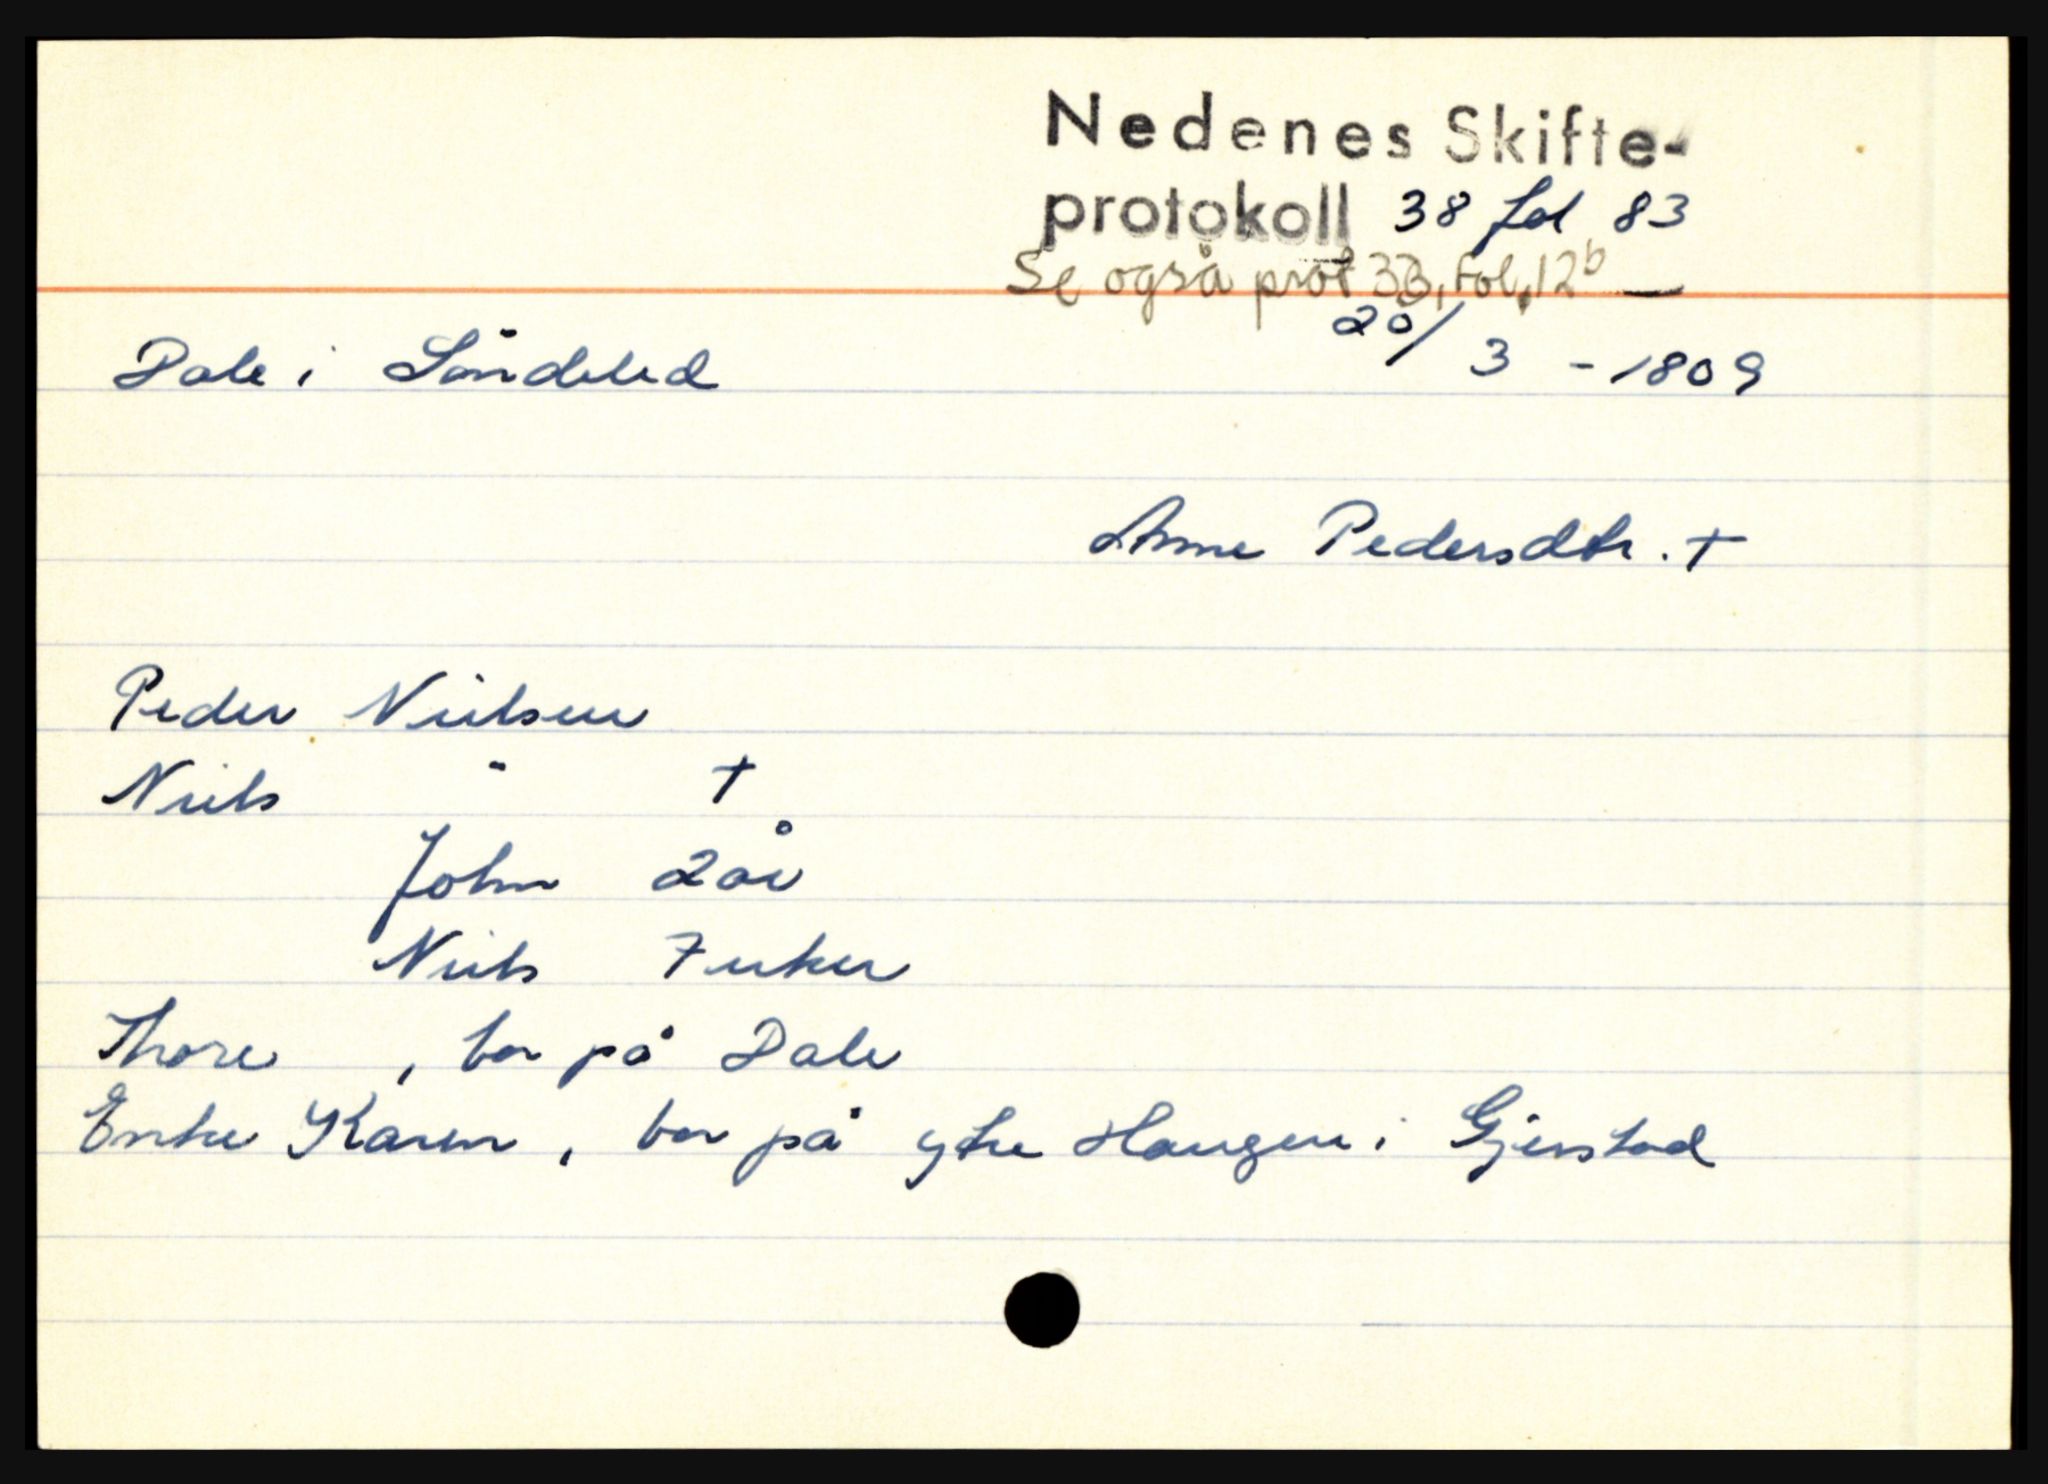 Nedenes Skifte-
protokoll 38 fol 83
Se også prot 33, Fol. 12b
Dale i Söndeled
20/3 - 1809
Anne Pedersdtr. †
Peder Nielsen
Niels " †
John 2 år
Niels 7 uker
Thore , bor på Dale
Enke Karen , bor på ytre Haugen i Gjerstad